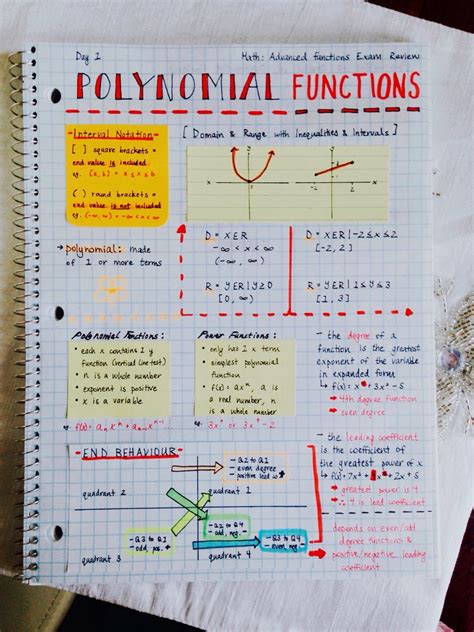 Day 1
Math: Advanced Functions Exam Review
POLYNOMIAL FUNCTIONS
- Interval Notation -
[ ] square brackets =
end value is included.
eg. [a,b] = a ≤ x ≤ b
( ) round brackets =
end value is not included
eg. (-∞, ∞) = -∞ < x < ∞
[ Domain & Range with Inequalities & Intervals ]
x
x
-2
2
D = XER
-∞ < x < ∞
(-∞, ∞)
R = YER | y ≥ 0
[0, ∞)
D = XER | -2 ≤ x ≤ 2
[-2, 2]
R = YER | 1 ≤ y ≤ 3
[1, 3]
→ polynomial: made
of 1 or more terms
Polynomial Functions:
• each x contains 1 y
function (vertical line test)
• n is a whole number
• exponent is positive
• x is a variable
Power Functions:
• only has 1 x term
• simplest polynomial
function
• f(x) = axⁿ, a is
a real number, n
is a whole number
eg. 3x⁴ or 3x - 2
- the degree of a
function is the greatest
exponent of the variable
in expanded form
→ 4th degree function
→ even degree
- the leading coefficient
is the coefficient of
the greatest power of x
→ greatest power is 4
∴ 4 is lead coefficient
→ depends on even/odd
degree functions &
positive/negative leading
coefficient
- END BEHAVIOUR -
- Q2 to Q1
- even degree
quadrant 2
quadrant 1
- Q3 to Q1
- odd, pos. +
- Q2 to Q4
- odd, neg. -
- Q3 to Q4
- even, neg. -
quadrant 3
quadrant 4